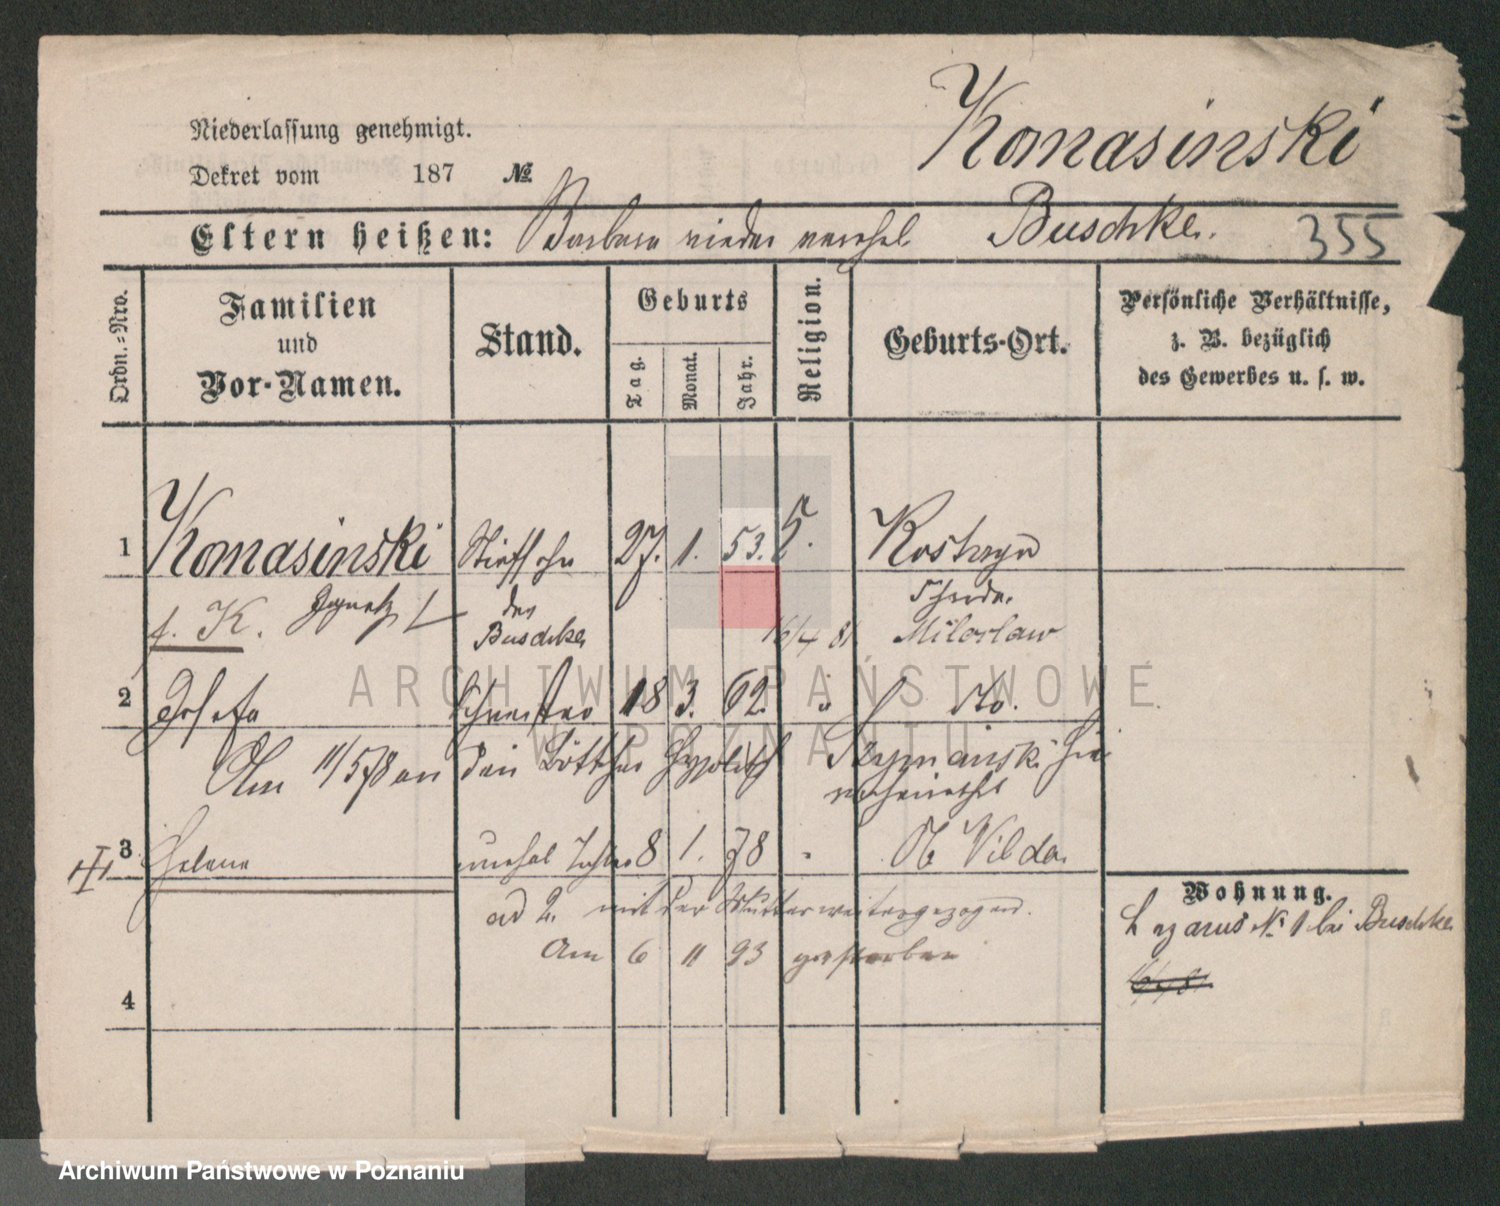 Niederlassung genehmigt.
Dekret vom 187 №
Komasinski
Eltern heißen: Barbara wieder verehel. Buschke. 355
Ordn.=Nro.
Familien
und
Vor-Namen.
Stand.
Geburts
Tag.
Monat.
Jahr.
Religion.
Geburts-Ort.
Persönliche Verhältnisse,
z. B. bezüglich
des Gewerbes u. s. w.
1 Komasinski Stiefsohn 27. 1. 53. Kostrzyn
f. K. Ignatz des Schroda
Buschke 16/4 81 Miloslaw
2 Josefa Schwester 18 3. 62. " Do.
Am 11/5 78 an den Böttcher Hypolit Szymanski hier
verheirathet
3 Helene unehel Tochter 8 1. 78 " O/ Vilda.
ad 2. mit der Mutter weitergezogen.
Am 6 11 93 gestorben
4
Wohnung.
Lazarus № 1 bei Buschke
16/4 81
ARCHIWUM PAŃSTWOWE
W POZNANIU
Archiwum Państwowe w Poznaniu